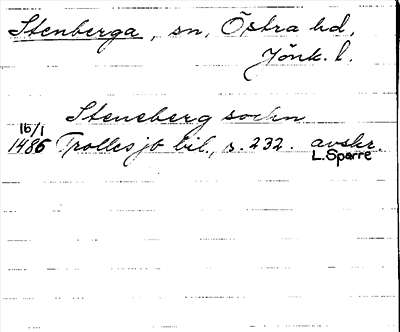 Stenberga, sn, Östra hd,
Jönk. l.
Steneberg sochn
16/1
1486 Trollesjö bil., s. 232. avskr.
L. Sparre